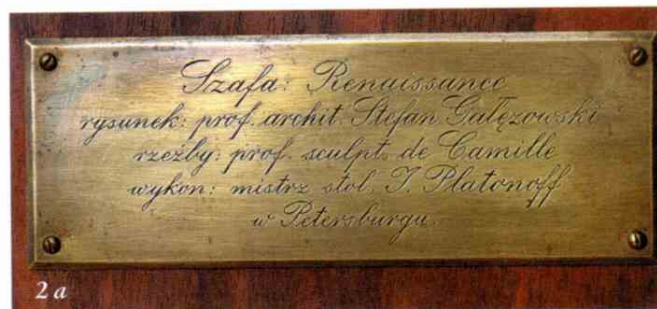 Szafa: Renaissance
rysunek: prof. archit. Stefan Gałęzowski
rzeźby: prof. sculpt. de Camille
wykon: mistrz stol. J. Platonoff
w Petersburgu.
2 a